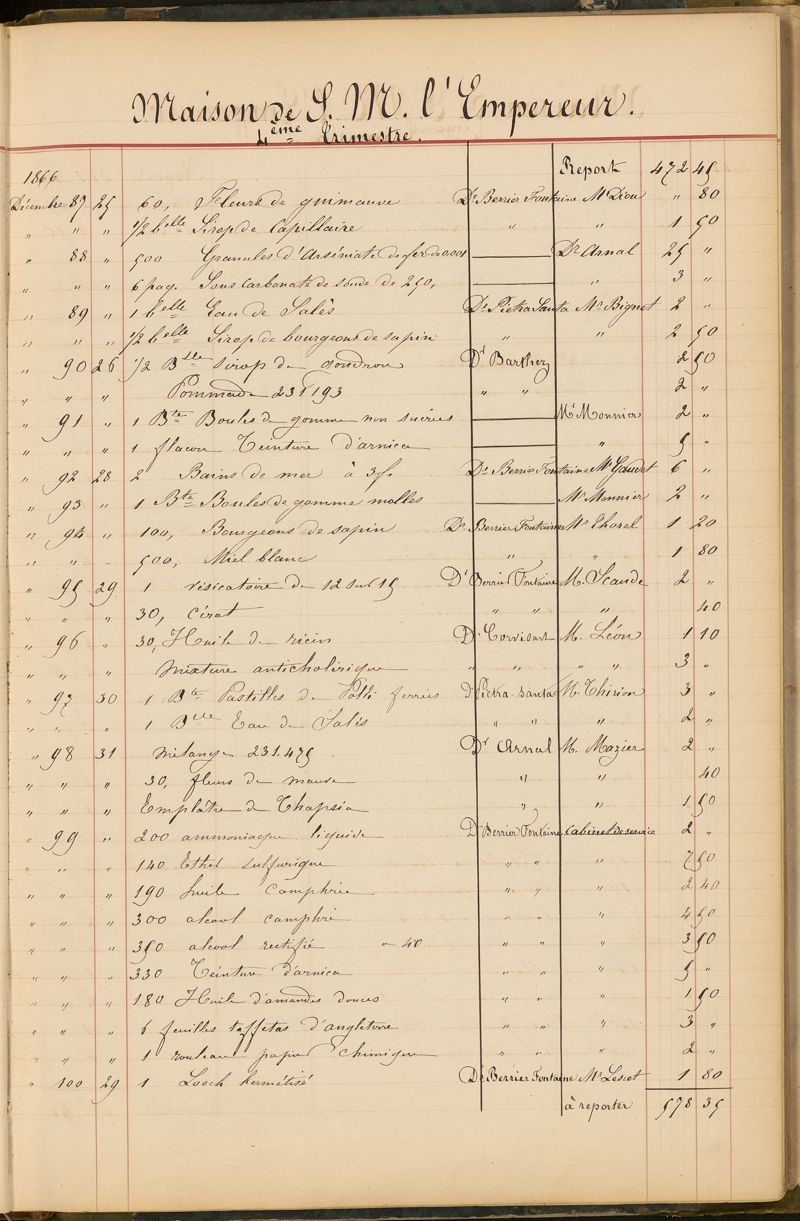 Maison de S. M. l'Empereur.
4ème Trimestre.
1866 Report 472 45
Décembre 87 25 60, Fleurs de guimauve Dr Berrier Fontaine Mr Diou " 80
" " " 1/2 belle Sirop de Capillaire " " 1 50
" 88 " 500 Granules d'Arséniate de fer de 0.001 Dr Arnal 25 "
" " " 6 paq. Sous carbonate de soude de 250, " 3 "
" 89 " 1 belle Eau de Salès Dr Pietra Santa Mr Bignet 2 "
" " " 1/2 belle Sirop de bourgeons de sapin " " 2 50
" 90 26 1/2 Blle sirop de goudron Dr Barthez 2 50
" " " Pommade 231193 " " 2 "
" 91 " 1 Bte Boules de gomme non sucrées Mr Monnier 2 "
" " " 1 flacon Teinture d'arnica " 5 "
" 92 28 2 Bains de mer à 3f. Dr Berrier Fontaine Mr Gaudet 6 "
" 93 " 1 Bte Boules de gomme molles Mr Monnier 2 "
" 94 " 100, Bourgeons de sapin Dr Berrier Fontaine Mr Thorel 1 20
" " " 500, Miel blanc " " 1 80
" 95 29 1 vésicatoire de 12 sur 15 Dr Berrier Fontaine M. Scaude 2 "
" " " 30, cérat " " " 40
" 96 " 30, Huile de ricin Dr Corvisart M. Léon 1 10
" " " Mixture anticholérique " " " " 3 "
" 97 30 1 Bte Pastilles de ferrées Dr Pietra Santa M. Thirion 3 "
" " " 1 Blle Eau de Salès " " " 2 "
" 98 31 Mélange 231.475 Dr Arnal M. Mazier 2 "
" " " 30, fleurs de mauve " " 40
" " " Emplâtre de Thapsia " " 1 50
" 99 " 200 ammoniaque liquide Dr Berrier Fontaine Cabinet de service 2 "
" " " 140 Ether sulfurique " " " 7 50
" " " 190 huile camphrée " " " 2 40
" " " 300 alcool camphré " " " 4 50
" " " 350 alcool rectifié - 40 " " " 3 50
" " " 330 Teinture d'arnica " " " 5 "
" " " 180 Huile d'amandes douces " " " 1 50
" " " 6 feuilles taffetas d'angleterre " " " 3 "
" " " 1 rouleau papier chimique " " " 2 "
" 100 29 1 Looch kermétisé Dr Berrier Fontaine Mr Lescot 1 80
à reporter 578 35